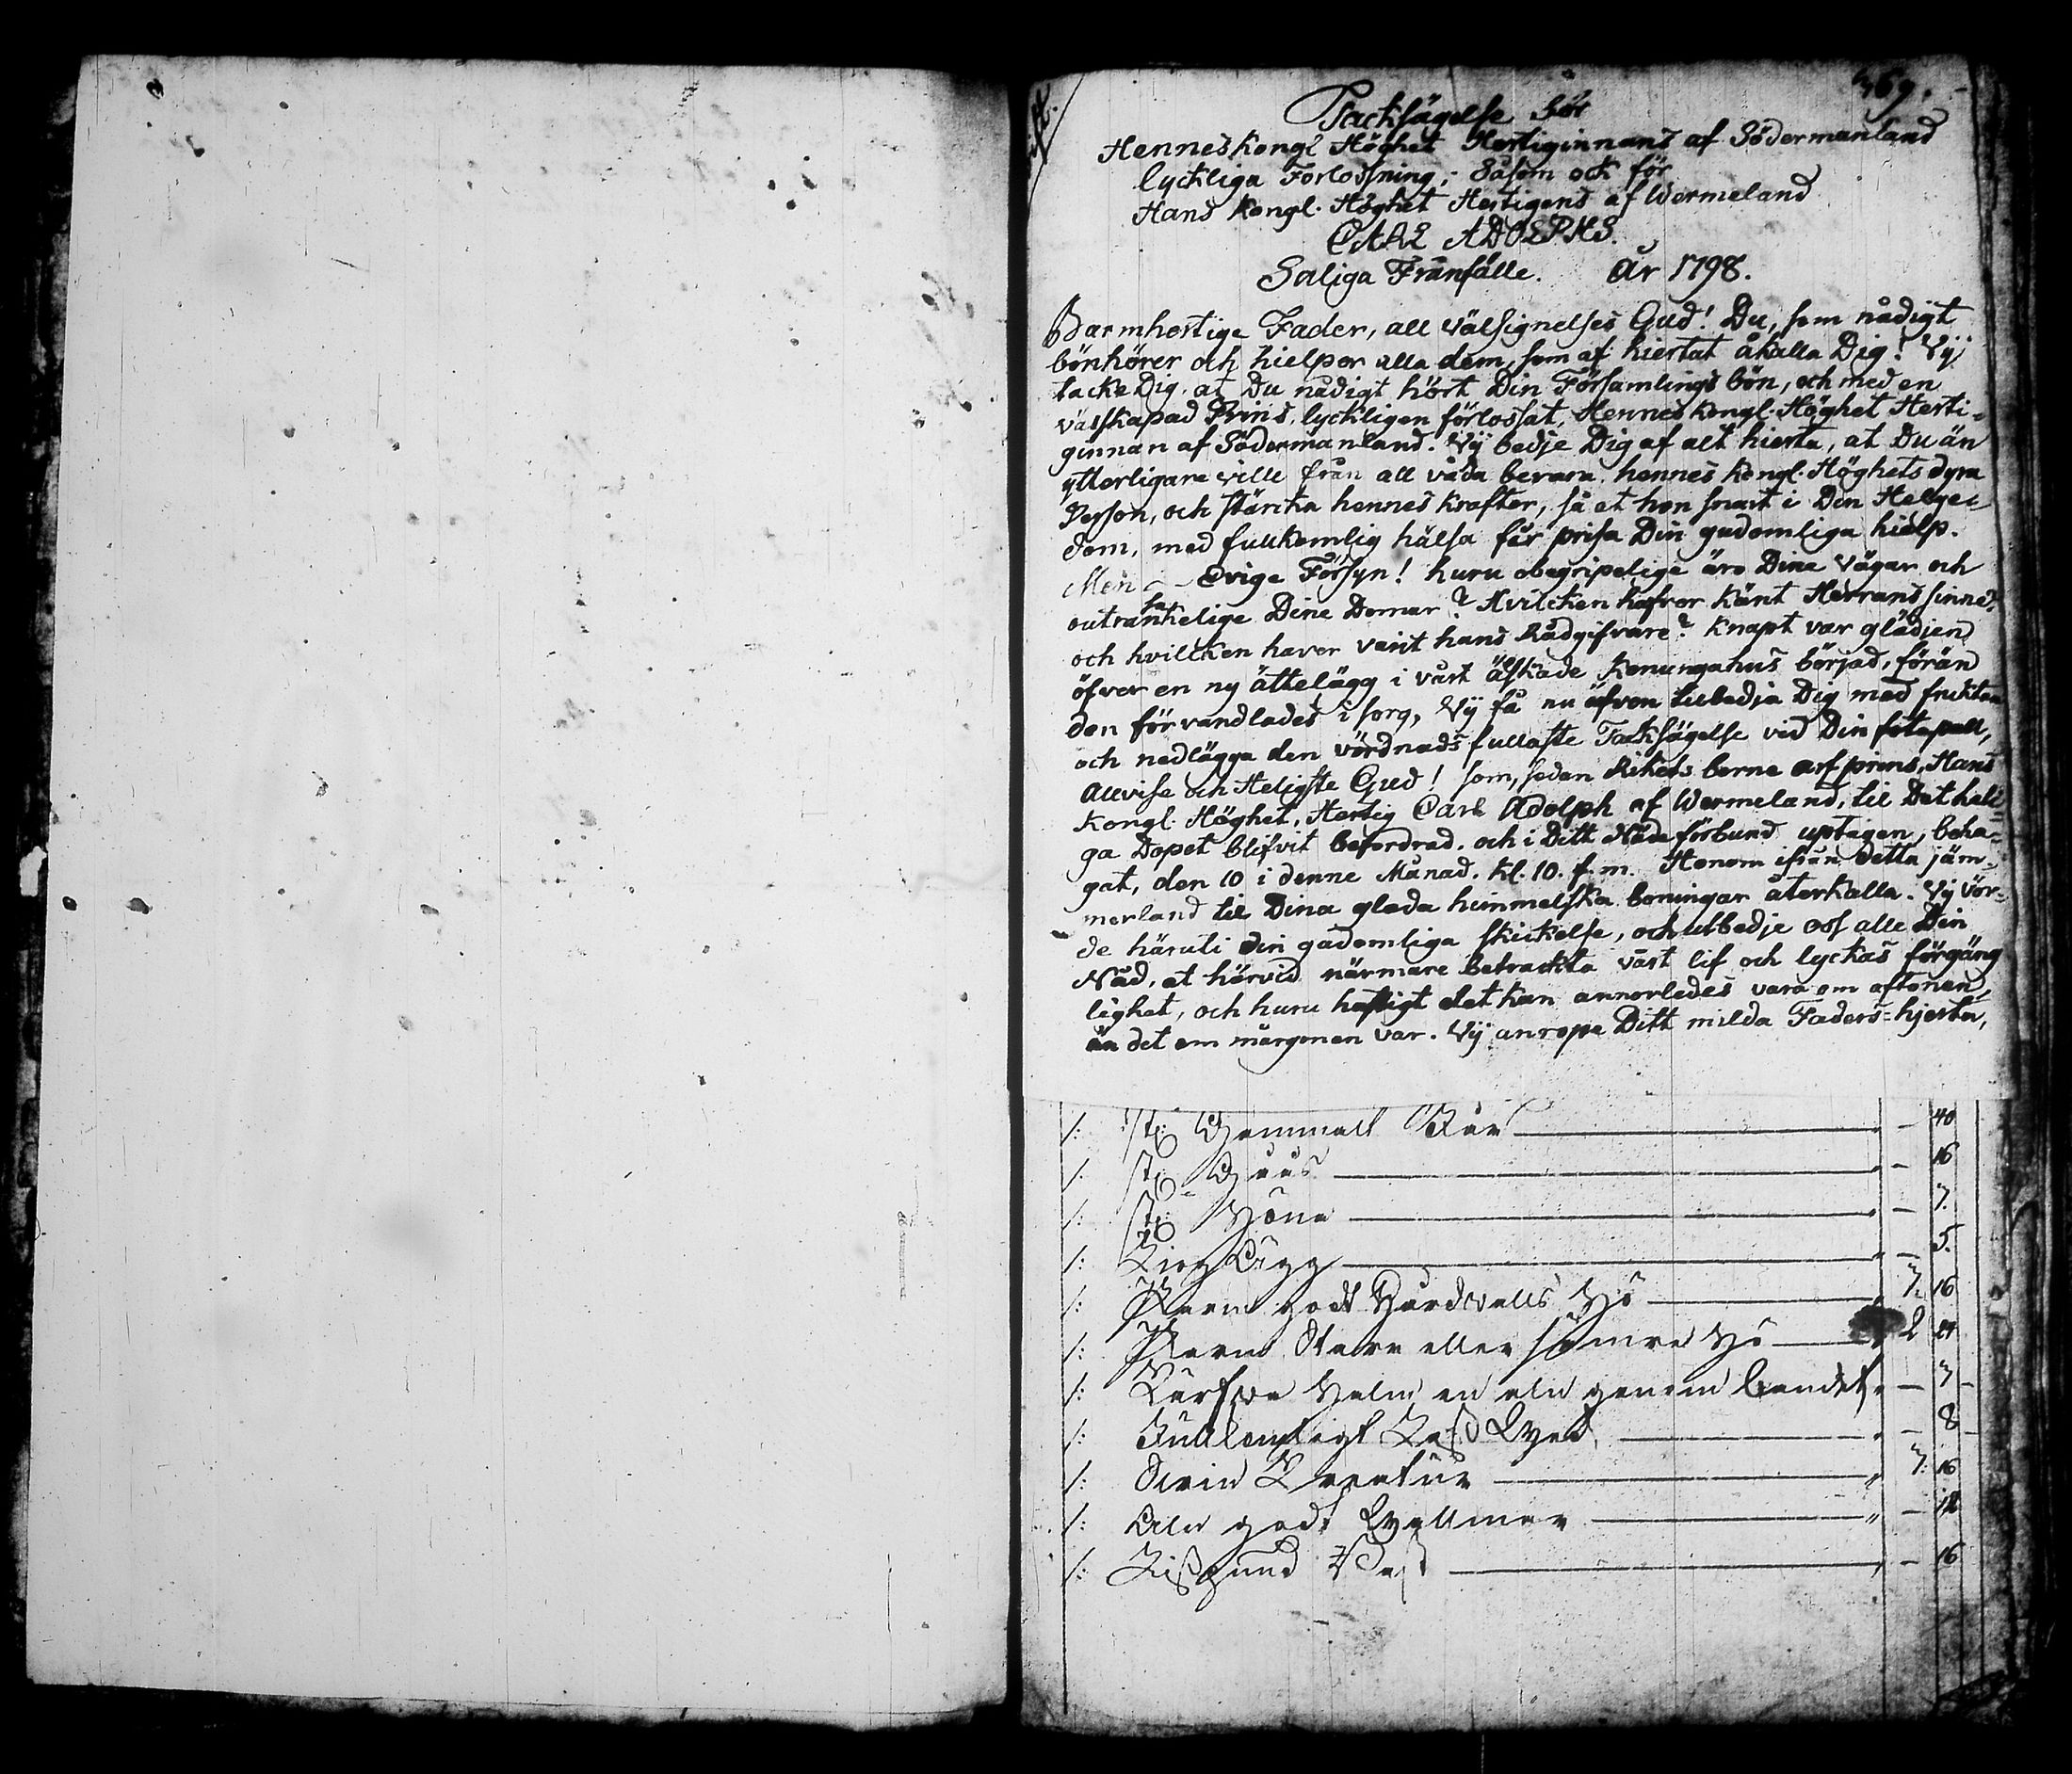 469.
Tacksägelse för
Hennes Kongl Höghet Hertiginnans af Södermanland
lyckliga Förlossning; Såsom ock för
Hans Kongl. Höghet Hertigens af Wermeland
CARL ADOLPHS.
Saliga Frånfälle. År 1798.
Barmhertige Fader, all Välsignelses Gud! Du, som nådigt
bönhörer och hielper alla dem, som af hiertat åkalla Dig! Vÿ
tacke Dig, at Du nådigt hört Din Församlings bön, och med en
välskapad Prins, lyckligen förlossat, Hennes Kongl. Höghet Herti-
ginnan af Södermanland. Vÿ bedje Dig af alt hierta, at Du än
ytterligare ville från all våda bevara hennes Kongl. Höghets dyra
Person, och stärcka hennes krafter, så at hon snart i Din Helge-
dom, med fullkomlig hälsa får prisa Din gudomliga hielp.
Men - - Evige Försyn! huru obegripelige äro Dine Vägar och
outransakelige Dine Domar? Hvilcken hafver känt Herrans sinne?
och hvilcken haver varit hans Rådgifvare? Knapt var glädjen
öfver en ny ättelägg i vårt älskade Konungahus börjad, förän
den förvandlades i sorg, Vÿ få nu äfven tillbedja Dig med fruktan
och nedlägga den vördnadsfullaste Tacksägelse vid Din fotapall,
Allvise och Heligste Gud! som, sedan Rikets borne arfprins, Hans
Kongl. Höghet, Hertig Carl Adolph af Wermeland, til Det heli-
ga Dopet blifvit befordrad, och i Ditt Nådeförbund uptagen, beha-
gat, den 10 i denne Månad. Kl. 10. f. m. Honom ifrån detta jäm-
merland til Dina glada himmelska boningar återkalla. Vÿ vör-
de häruti din gudomliga skickelse, och utbedje oss alle Din
Nåd, at härvid närmare betrackta vårt lif och lyckas förgäng
lighet, och huru hastigt det kan annorledes vara om aftonen,
än det om mårgonen var. Vÿ anrope Ditt milda Faders-hjerta,
1: st: Gammalt Får — 40
1: st: Gås — 16
1: st: Höna — 7.
1: Tiog Ägg — 5.
1: Parm godt Hårdvalls Hö — 1. 16
1: Parm Starr eller sämre Hö — 2 24
1: Kärfva Halm en aln genom bandet — 1 —
1: — 8
1: — 1: 16
1: Aln godt Wallmar — 12
1: Lispund — 16